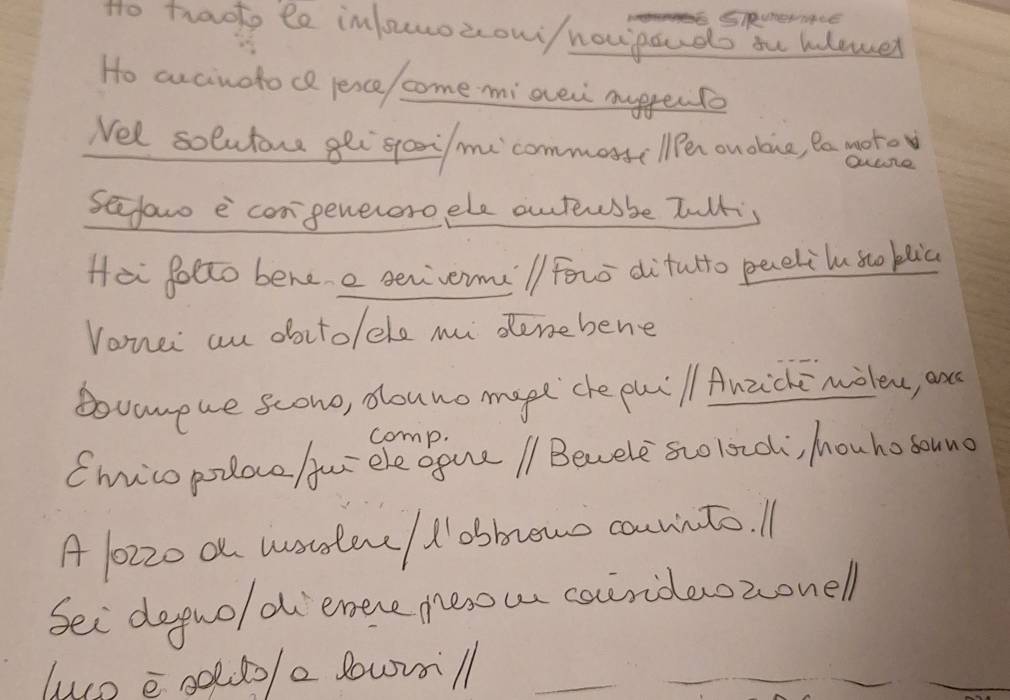 STRUMENTALE
Ho tratto le informazioni/navigando su Internet
Ho cucinato il pesce/come mi avevi suggerito
Nel salutare gli sposi/mi commossi//Per andare, la moto va
ancora
Stefano è così generoso, che aiuterebbe tutti,
Hai fatto bene a scrivermi//Farò di tutto perché tu sia felice
Vorrei un abito/che mi stesse bene
Dovunque siano, stanno megl che qui//Anziché
comp.
Enrico parlava/più che agire//Benché sia tardi,/non ho sonno
A forza di insistere/l'abbiamo convinto.//
Sei degno/di essere preso in considerazione//
Luca è solito/a lavarsi//